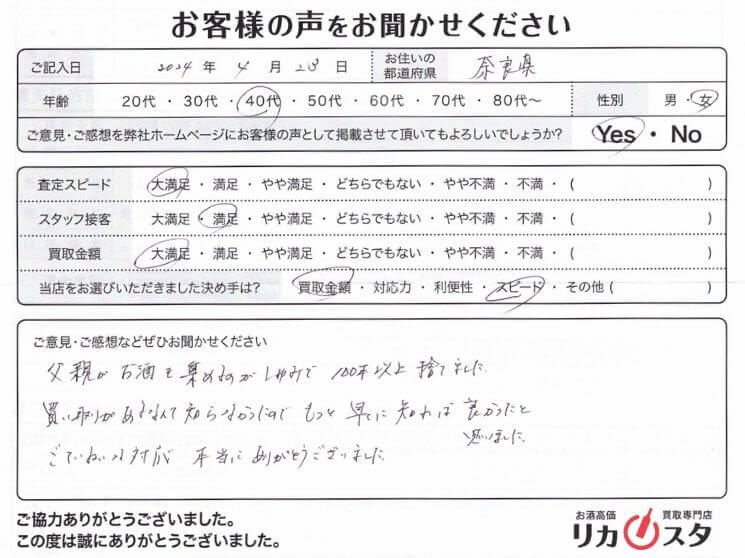 お客様の声をお聞かせください
ご記入日 2024 年 4 月 28 日 お住いの都道府県 奈良県
年齢 20代 ・ 30代 ・ 40代 ・ 50代 ・ 60代 ・ 70代 ・ 80代～ 性別 男 ・ 女
ご意見・ご感想を弊社ホームページにお客様の声として掲載させて頂いてもよろしいでしょうか? Yes ・ No
査定スピード 大満足 ・ 満足 ・ やや満足 ・ どちらでもない ・ やや不満 ・ 不満 ・ ( )
スタッフ接客 大満足 ・ 満足 ・ やや満足 ・ どちらでもない ・ やや不満 ・ 不満 ・ ( )
買取金額 大満足 ・ 満足 ・ やや満足 ・ どちらでもない ・ やや不満 ・ 不満 ・ ( )
当店をお選びいただきました決め手は? 買取金額 ・ 対応力 ・ 利便性 ・ スピード ・ その他 ( )
ご意見・ご感想などぜひお聞かせください
父親が お酒を 集めるのが しゅみで 100本以上 捨てました
買い取りがあるなんて 知らなかったので もっと 早くに 知れば 良かったと
思いました
ごていねいな対応 本当に ありがとうございました
ご協力ありがとうございました。
この度は誠にありがとうございました。
お酒高価 買取専門店
リカスタ